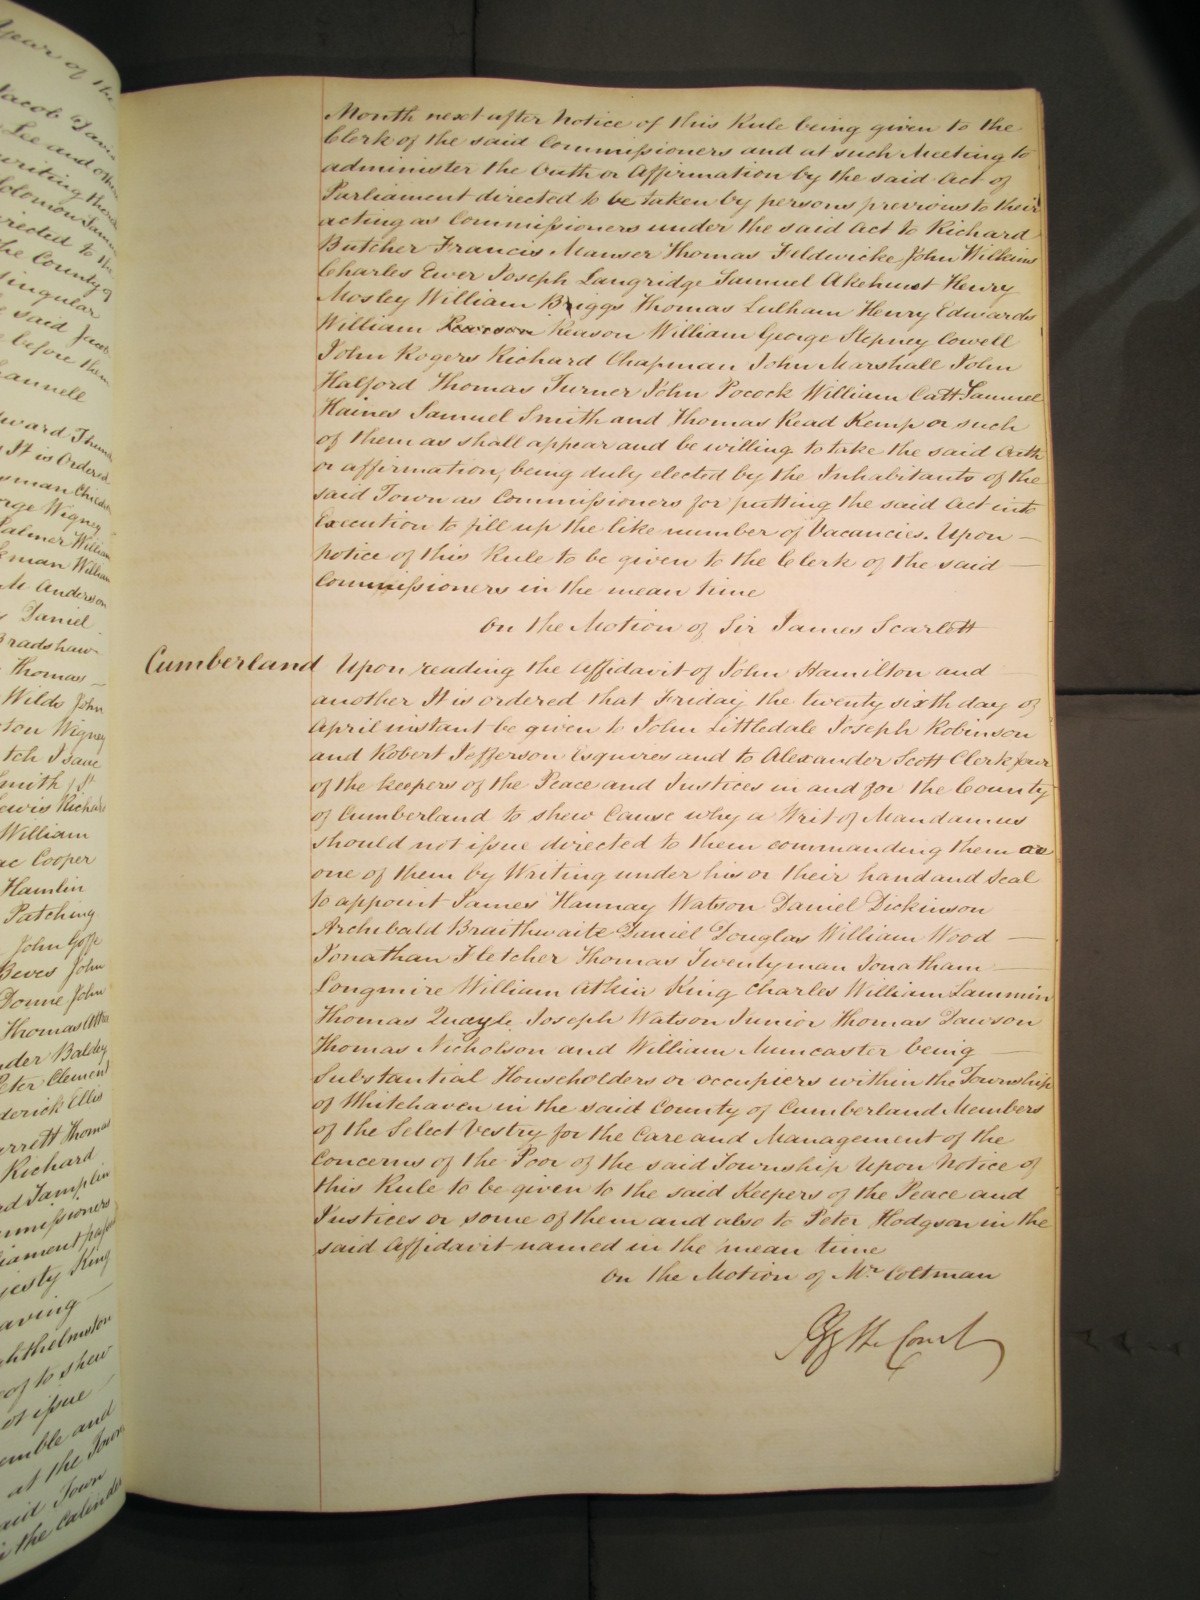 year of the
Jacob Davis
Lee and others
writing them
Solomon Sam
irected to the
the County of
Singular
said Just
before them
annell
ward Thun
It is Ordered
sman
orge Wigney
Latmer William
kman William
M Anderson
Daniel
Bradshaw
Thomas
Wilds John
son Wigney
tch Isaac
Smith / St
Lewis Richard
William
ac Cooper
Hamlin
Patching
John Goffe
Beves John
Donne John
Thomas Attree
nder Baldey
Peter Clement
derick Ellis
arrett Thomas
Richard
rd Tamplin
mmissioners
liament pass
jesty King
aving
hthelmston
of to shew
ot issue
emble and
at the Town
said Town
in the Calendar
Month next after Notice of this Rule being given to the
Clerk of the said Commissioners and at such Meeting to
administer the Oath or Affirmation by the said Act of
Parliament directed to be taken by persons previous to their
acting as Commissioners under the said Act to Richard
Butcher Francis Manser Thomas Feldwicke John Wilkins
Charles Ewer Joseph Langridge Samuel Akehurst Henry
Mosley William Briggs Thomas Lulham Henry Edwards
William Reason William George Stepney Cowell
John Rogers Richard Chapman John Marshall John
Halford Thomas Turner John Pocock William Catt Samuel
Haines Samuel Smith and Thomas Read Kemp or such
of them as shall appear and be willing to take the said Oath
or affirmation, being duly elected by the Inhabitants of the
said Town as Commissioners for putting the said Act into
Execution to fill up the like number of Vacancies. Upon
notice of this Rule to be given to the Clerk of the said
Commissioners in the mean time
On the Motion of Sir James Scarlett
Cumberland Upon reading the Affidavit of John Hamilton and
another It is ordered that Friday the twenty sixth day of
April instant be given to John Littledale Joseph Robinson
and Robert Jefferson Esquires and to Alexander Scott Clerk four
of the keepers of the Peace and Justices in and for the County
of Cumberland to shew Cause why a Writ of Mandamus
should not issue directed to them commanding them or
one of them by Writing under his or their hand and Seal
to appoint James Hannay Watson Daniel Dickinson
Archibald Braithwaite Daniel Douglas William Wood
Jonathan Fletcher Thomas Twentyman Jonathan
Longmire William Atkin King Charles William Lammin
Thomas Quayle Joseph Watson Junior Thomas Dawson
Thomas Nicholson and William Muncaster being
Substantial Householders or occupiers within the Township
of Whitehaven in the said County of Cumberland Members
of the Select Vestry for the Care and Management of the
Concerns of the Poor of the said Township Upon Notice of
this Rule to be given to the said Keepers of the Peace and
Justices or some of them and also to Peter Hodgson in the
said Affidavit named in the mean time
On the Motion of Mr. Coltman
By the Court